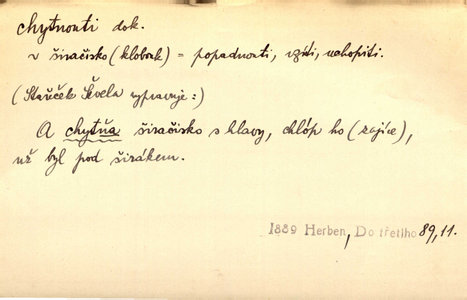 chytnouti dok.
v širačisko (klobouk) = popadnouti, vzíti, uchopiti.
(Stařeček Švela vypravuje:)
A chytňa širačisko s hlavy, chlóp ho (zajíce),
už byl pod širákem.
1889 Herben, Do třetího 89,11.